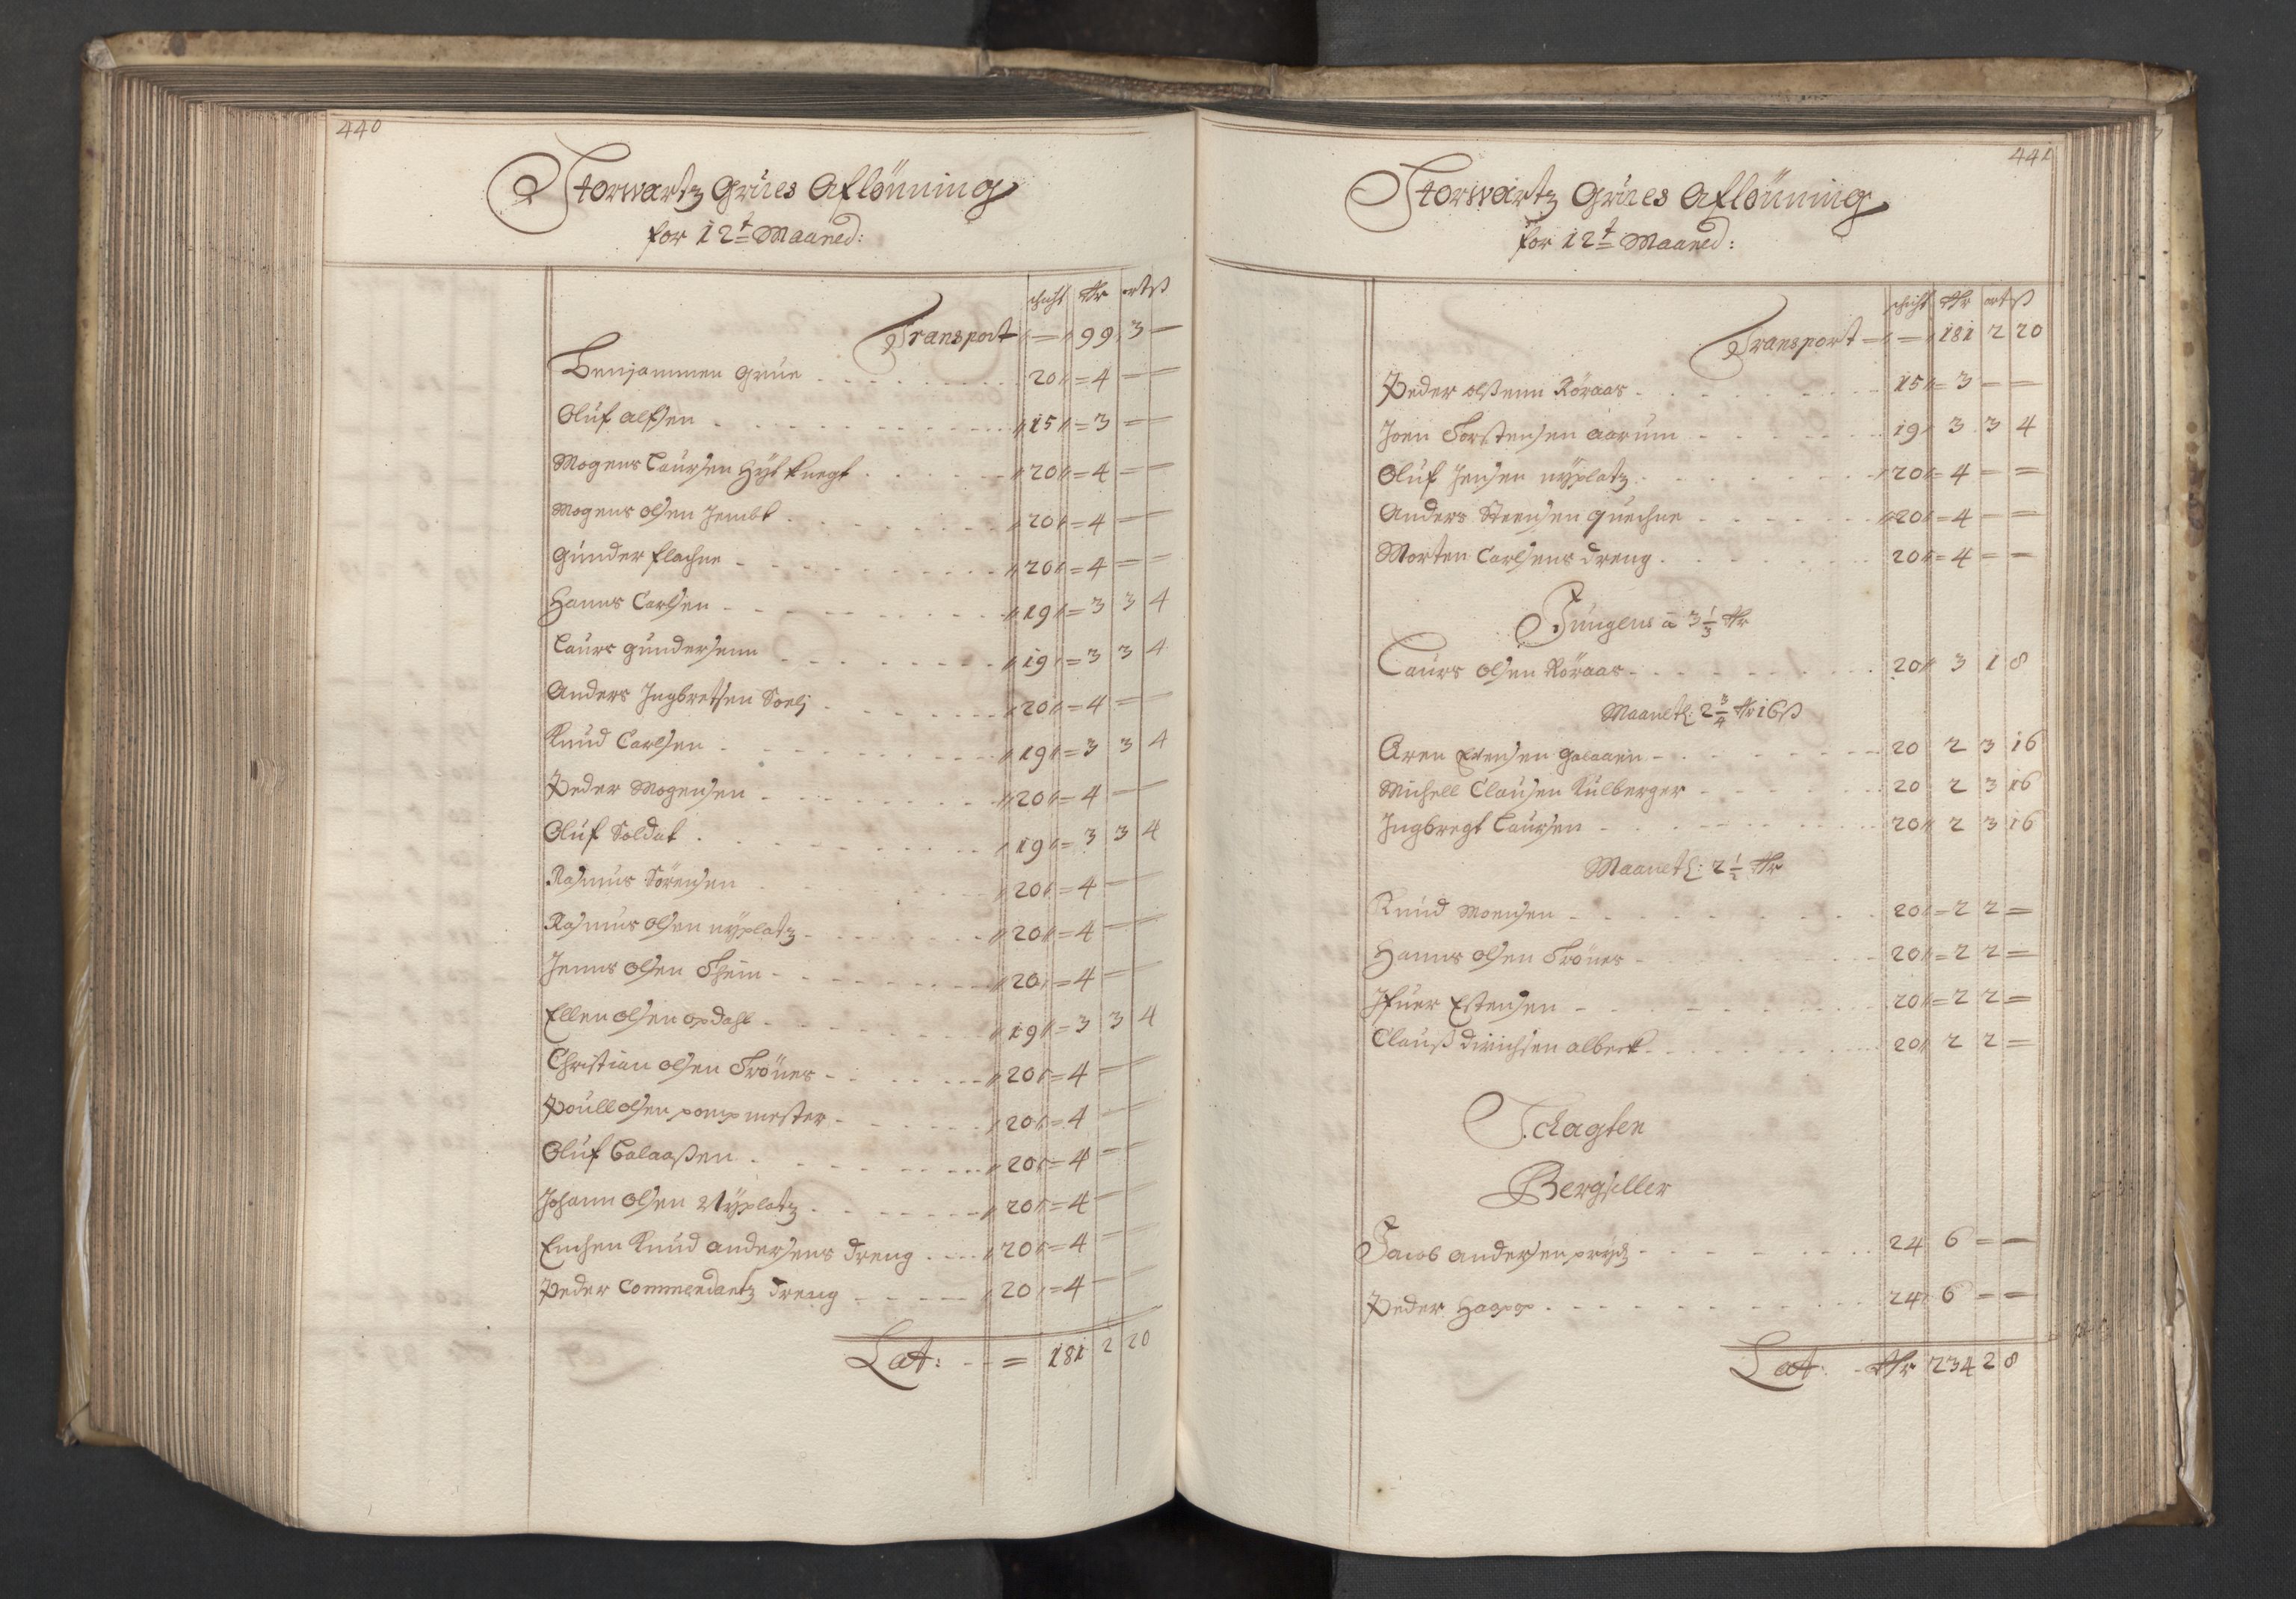 440
Storwartz Grües Aflönning
for 12t Maaned:
schicht Rdr ortß
Transport — 99 3 —
Benjammen Grüe 20 4 — —
Oluf alfsen 15 3 — —
Mogens Laursen Hÿt knegt 20 4 — —
Mogens olsen 20 4 — —
Günder flachne 20 4 — —
Hanns Carlsen 19 3 3 4
Laurs gundersenn 19 3 3 4
Anders Ingbretsen 20 4 — —
Knud Carlsen 19 3 3 4
Peder Mogensen 20 4 —
Oluf Soldat 19 3 3 4
Rasmus Sörensen 20 4 —
Rasmus olsen nÿplatz 20 4 —
Jenns olsen 20 4 —
Ellen olsen opdahl 19 3 3 4
Christian olsen Tröner 20 4 —
Poull olsen pompmester 20 4 —
Oluf Galaaßen 20 4 —
Johann olsen Nÿplatz 20 4 —
Knud andersens dreng 20 4 —
Peder Commendantz dreng 20 4 —
Lat: = 181 2 20
441
Storwartz Grües Aflönning
for 12t Maaned:
schicht Rdr ortß
Transport — 181 2 20
Peder olßenn Röraas 15 3 — —
Joen Torstensen aarum 19 3 3 4
Oluf Jensen nÿplatz 20 4 — —
Anders Steensen quechne 20 4 — —
Morten Carlsens dreng 20 4 — —
Jüngens a 3 1/3 Rdr
Laurs olsen Röraas 20 3 1 8
Maanetl: 2 3/4 Rdr 16ß
Aren Estensen Galaaen 20 2 3 16
Michell Clausen Kulberger 20 2 3 16
Ingbregt Laursen 20 2 3 16
Maanetl: 2 1/2 Rdr
Knud Monsen 20 2 2 =
Hanns olsen Tröner 20 2 2 =
Ifuer Estensen 20 2 2 =
Clauß dirichsen albert 20 2 2 =
Schagten
Bergseller
Jacob andersen prÿtz 24 6 — —
Peder Happ 24 6 — —
Lat: Rdr 234 2 8